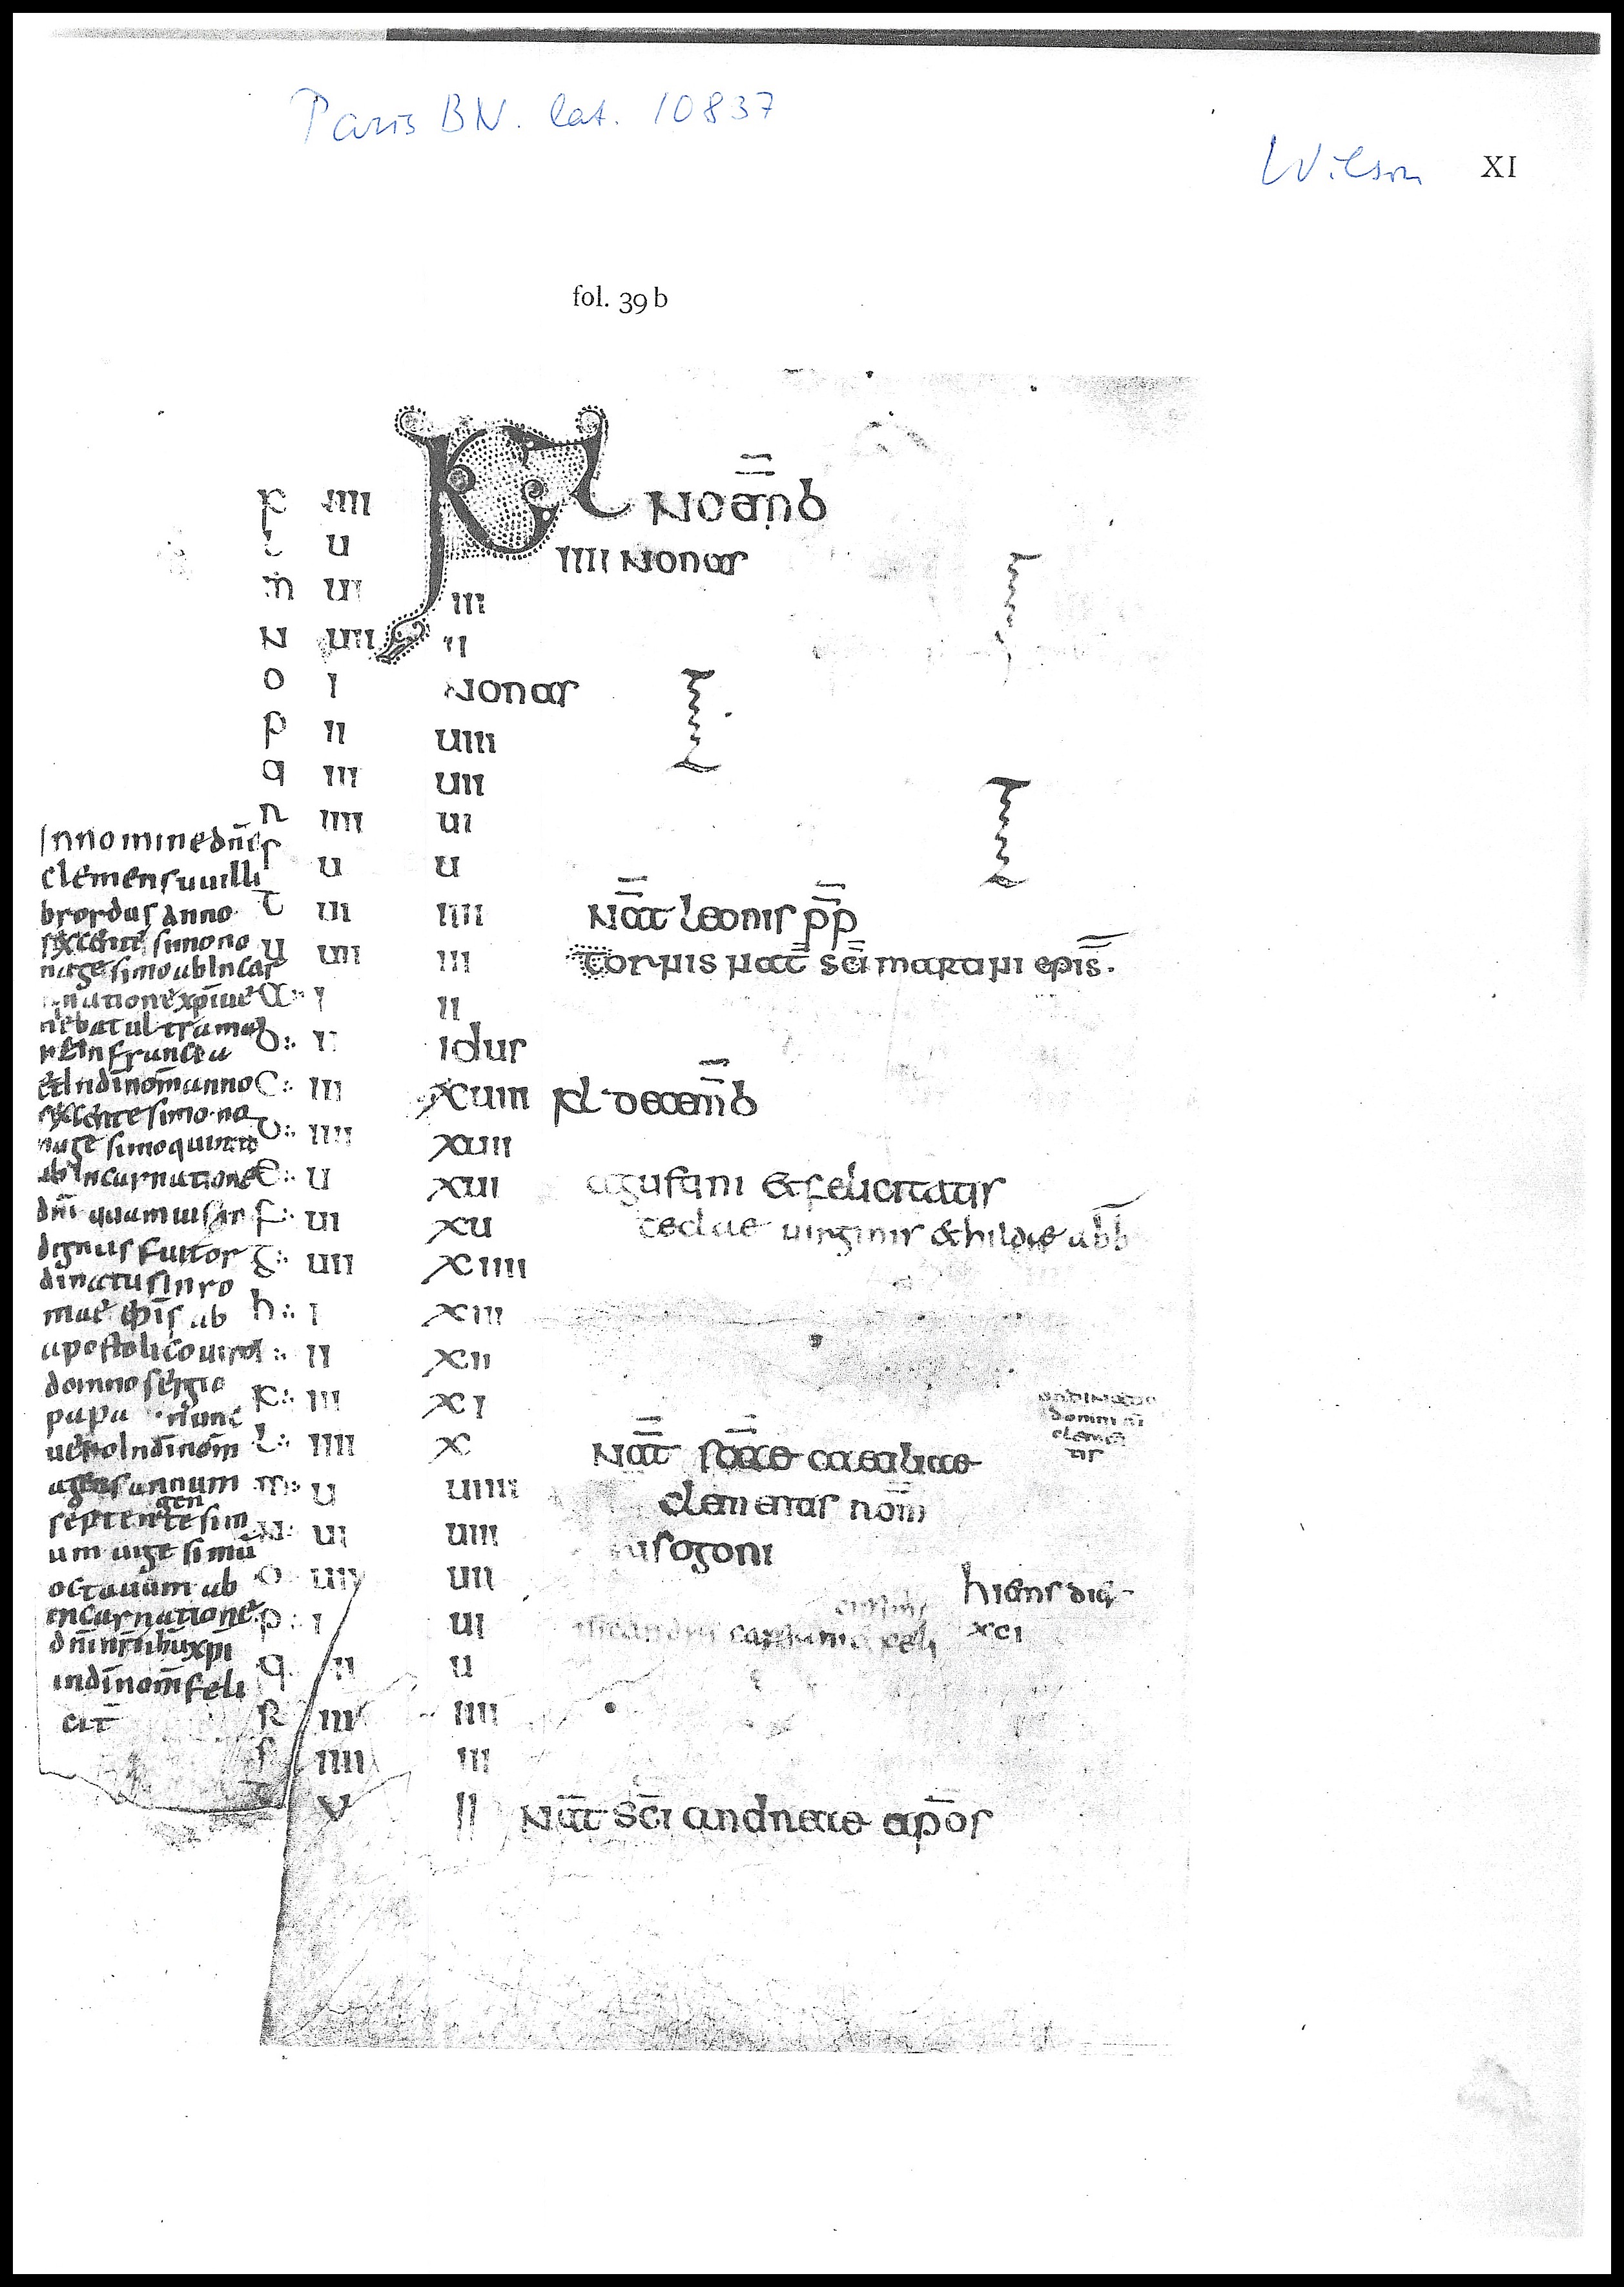 Paris BN. lat. 10837
Wilson XI
fol. 39b
p IIII Kl Noemb
l u IIII Nonas
m ui III
N uii II
o I Nonas
p II uiii
q III uii
r IIII ui
s u u
t ui IIII Nat leonis pp
u uii III Tornis nat sci martini epis.
a: I II
b: II idus
c: III xuiii kl decemb
d: IIII xuii
e: u xui agustini et felicitatis
f: ui xu teclae uirginis et hildae abb
g: uii xiiii
h: I xiii
i: II xii
k: III xi
l: IIII x Nat scae caeciliae
m: u uiiii clementis rom
N: ui uiii isogoni
o uii uii hiems dies
p I ui xci
q II u
R III IIII
s IIII III
V II Nat sci andreae apos
ordinatio
domini ni
clemen
tis
In nomine dni
clemens uuilli
brordus anno
sexcentesimo no
nagesimo ab incar
natione xpi ue
niebat ultra ma
re in francea
et in di nom anno
sexcentesimo no
nagesimo quinto
ab incarnatione
dni quamuis in
dignus fuit or
dinatus in ro
mae epis ab
apostolico uiro
domno sergio
papa nunc
uero in di nom
agens annum
septengentesim
um uigesimu
octauum ab
incarnatione
dni nri ihu xpi
in di nom feli
cit